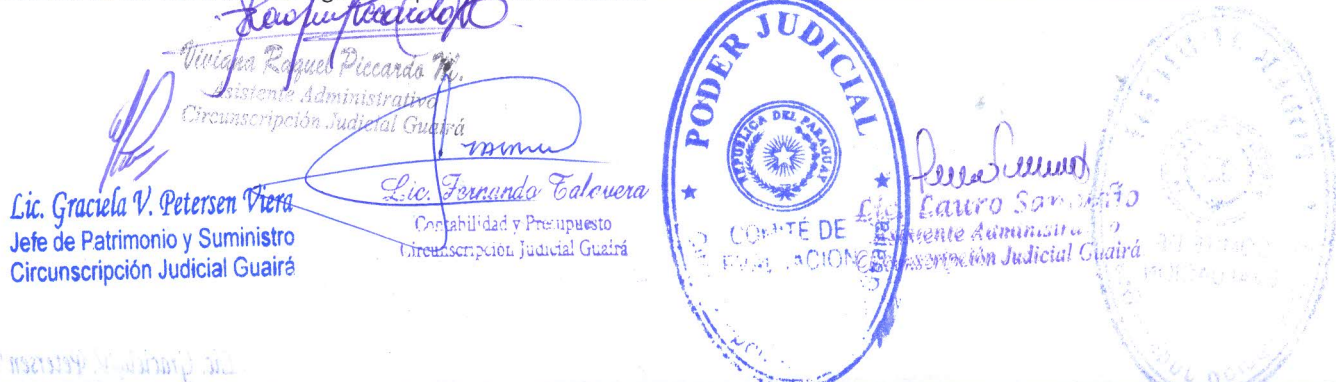 Viviana Raquel Piccardo M.
Asistente Administrativo
Circunscripción Judicial Guairá
Lic. Graciela V. Petersen Viera
Jefe de Patrimonio y Suministro
Circunscripción Judicial Guairá
Lic. Fernando Talavera
Contabilidad y Presupuesto
Circunscripción Judicial Guairá
PODER JUDICIAL
REPUBLICA DEL PARAGUAY
COMITÉ DE
EVALUACION
Lic. Lauro
Asistente Administrativo
Circunscripción Judicial Guairá
Lic. Graciela V. Petersen